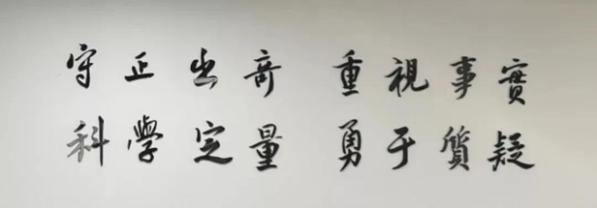 守正出奇 重視事實
科學定量 勇于質疑